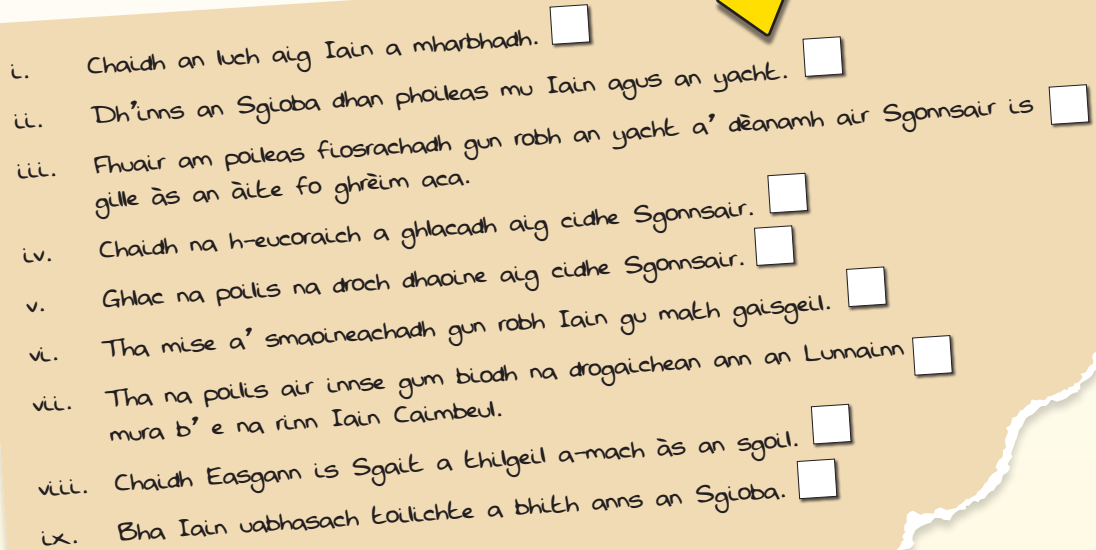 i. Chaidh an luch aig Iain a mharbhadh.
ii. Dh'inns an Sgioba dhan phoileas mu Iain agus an yacht.
iii. Fhuair am poileas fiosrachadh gun robh an yacht a' dèanamh air Sgonnsair is
gille às an àite fo ghrèim aca.
iv. Chaidh na h-eucoraich a ghlacadh aig cidhe Sgonnsair.
v. Ghlac na poilis na droch dhaoine aig cidhe Sgonnsair.
vi. Tha mise a' smaoineachadh gun robh Iain gu math gaisgeil.
vii. Tha na poilis air innse gum biodh na drogaichean ann an Lunnainn
mura b' e na rinn Iain Caimbeul.
viii. Chaidh Easgann is Sgait a thilgeil a-mach às an sgoil.
ix. Bha Iain uabhasach toilichte a bhith anns an Sgioba.